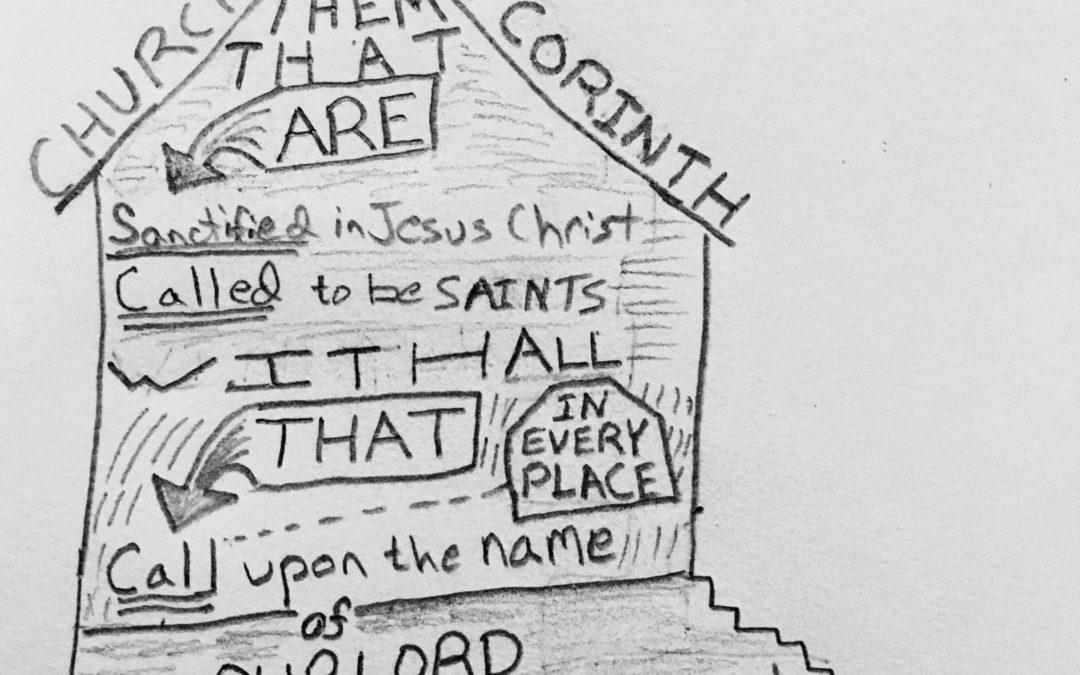 CHURCH
THEM
CORINTH
THAT
ARE
Sanctified in Jesus Christ
Called to be SAINTS
WITH ALL
THAT
IN
EVERY
PLACE
Call upon the name
of
OUR LORD